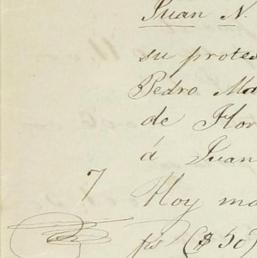 Juan N.
su protes
Pedro Ma
de Flor
á Juan
7 Hoy ma
ps ($50)